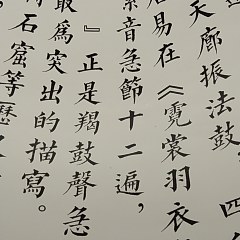 天廊振法鼓
居易在《霓裳羽衣
音急節十二遍，
』正是羯鼓聲急
最為突出的描寫。
石窟等歷